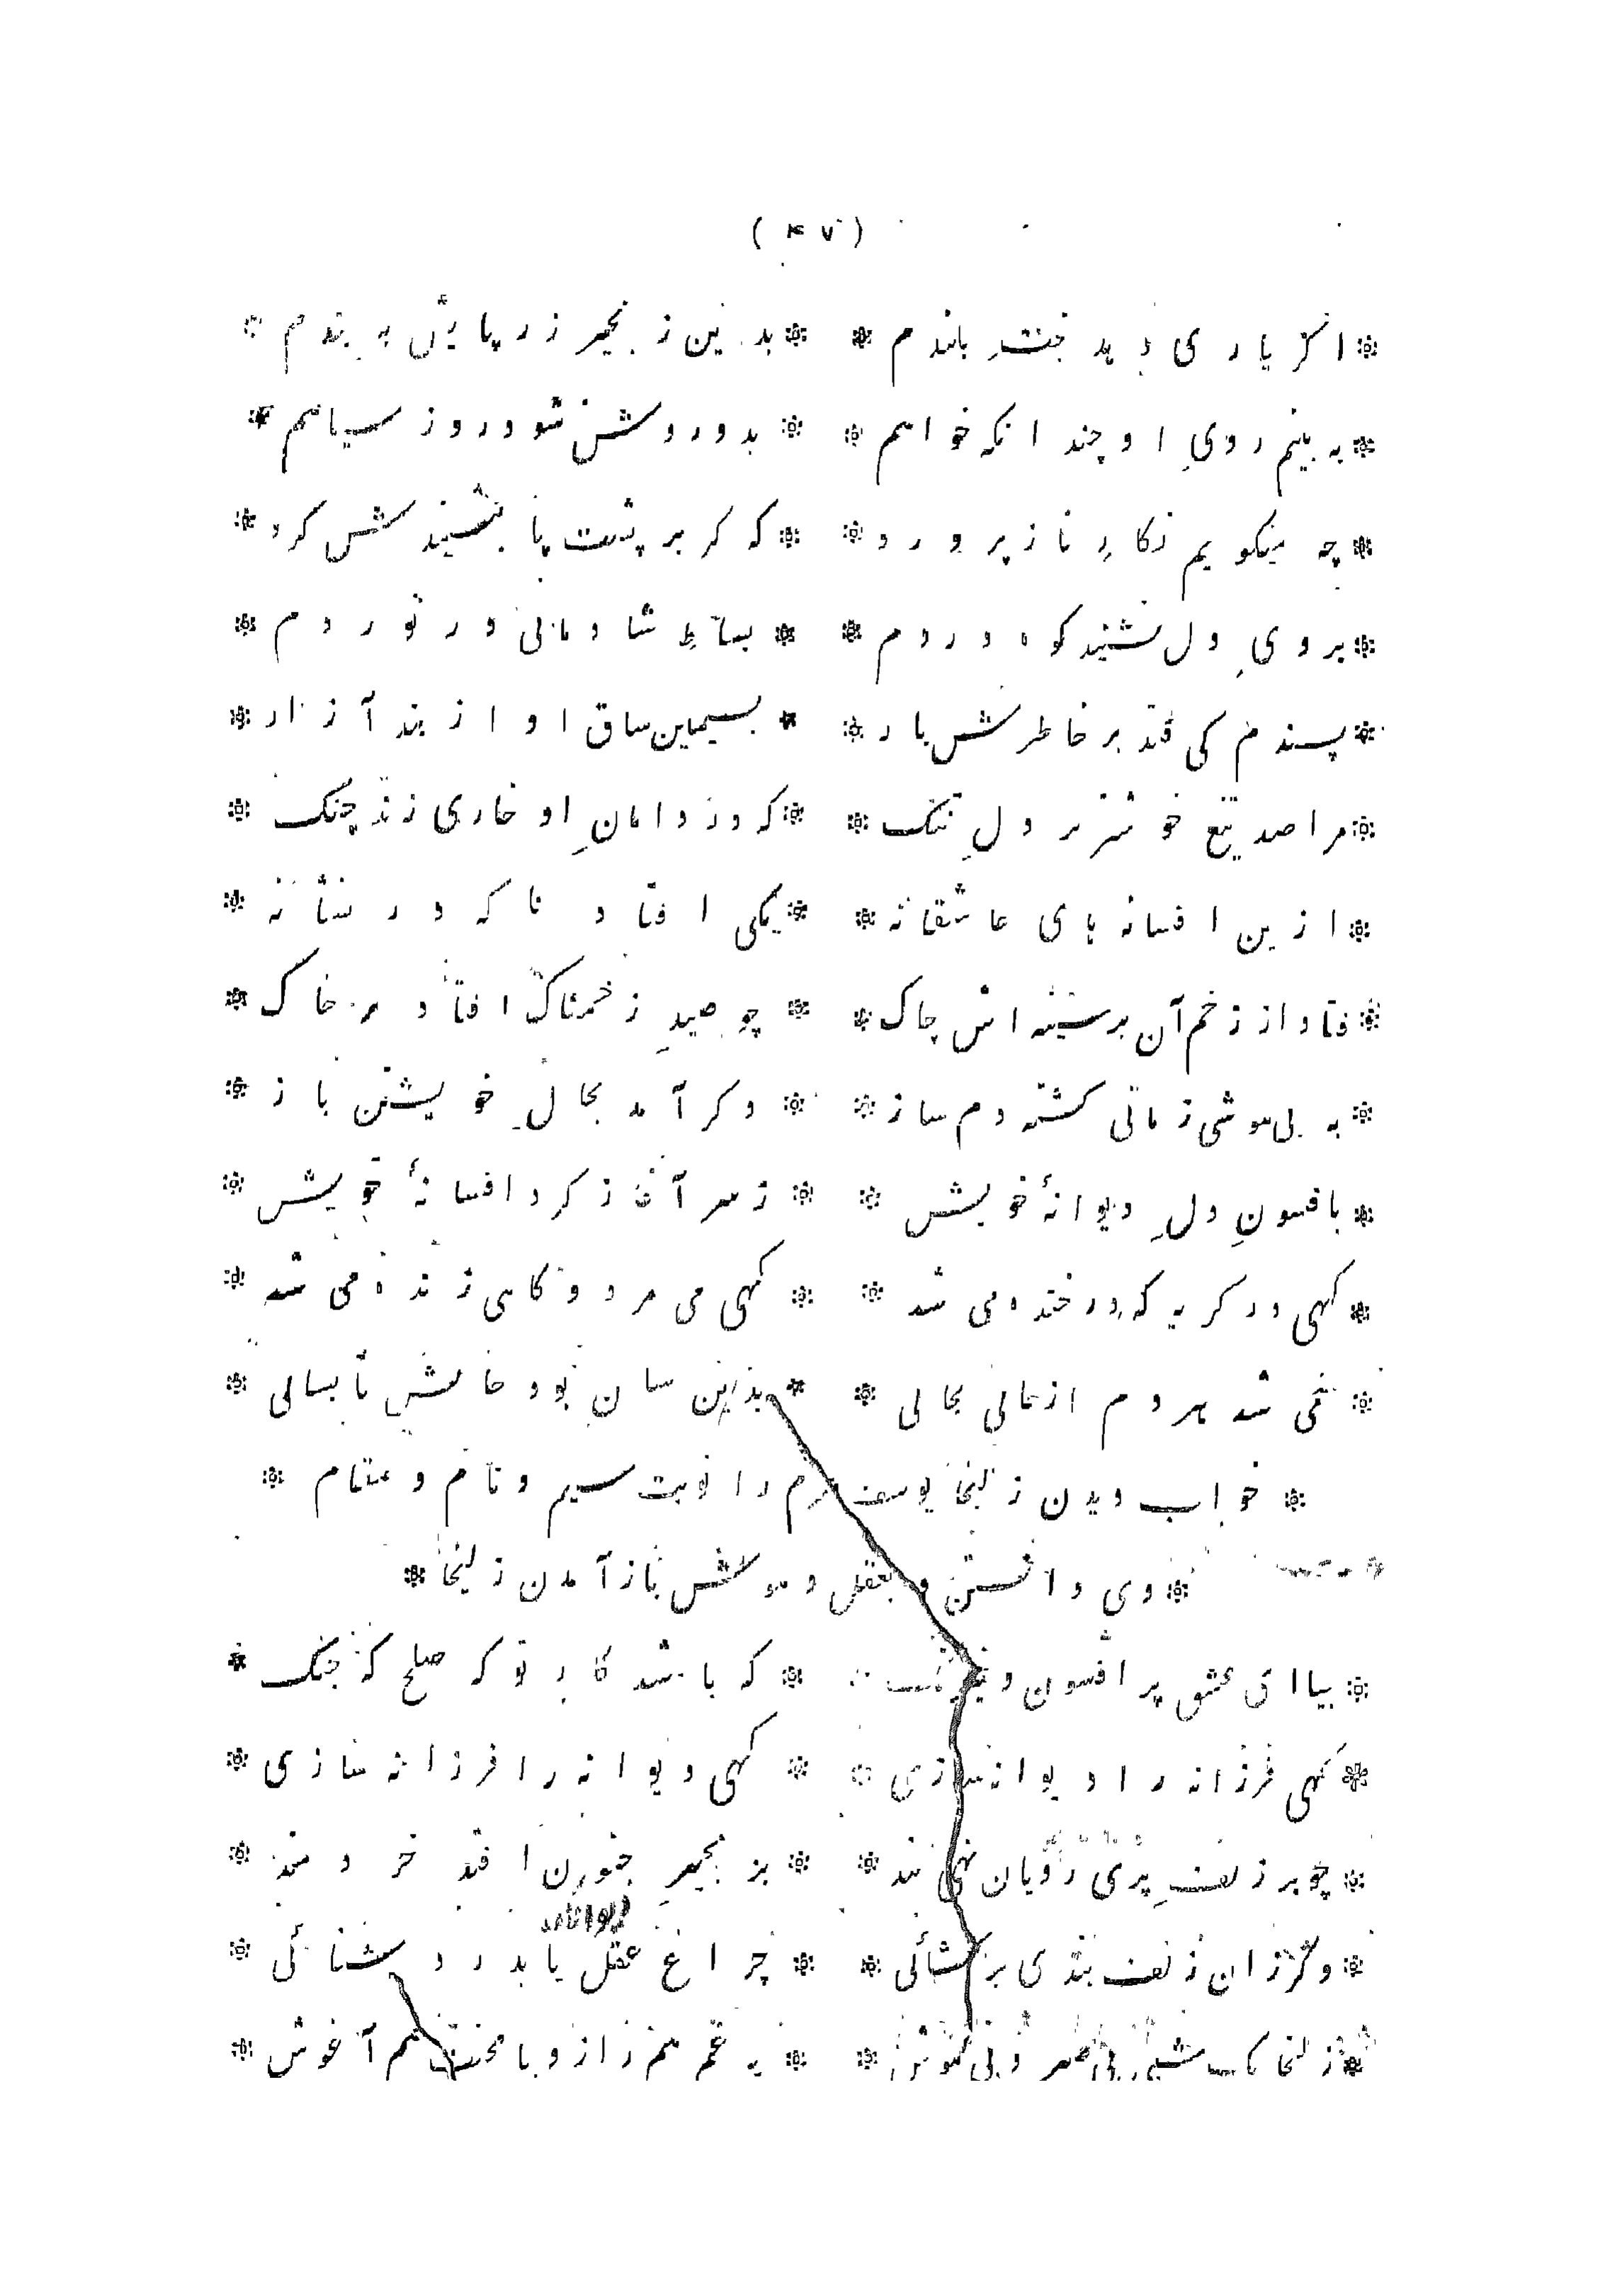 ( ۴۷ )
* اگر یاری دهد بخت بلندم * * بدین زنجیر زر پایش به بندم *
* به بینم روی او چندانکه خواهم * * بدو روشن شود روز سیاهم *
* چه میگویم نگار نازپرورد * * که گر بر پشت پا بنشیندش گرد *
* بروی دل نشیند کوه دردم * * بساط شادمانی در نوردم *
* پسندم کی فتد بر خاطرش بار * * بسیمین ساق او از بند آزار *
* مرا صد تیغ خوشتر بر دل تنگ * * که در دامان او خاری زند چنگ *
* ازین افسانه های عاشقانه * * یکی افتاد ناگه در نشانه *
* فتاد از زخم آن بر سینه اش چاک * * چو صید زخمناک افتاد بر خاک *
* به بی هوشی زمانی گشته دمساز * * دگر آمد بحال خویشتن باز *
* بافسون دل دیوانهٔ خویش * * ز سر آغاز کرد افسانهٔ خویش *
* گهی در گریه گه در خنده می شد * * گهی می مرد و گاهی زنده می شد *
* همی شد هر دم از حالی بحالی * * بدین سان بود حالش تا بسالی *
* خواب دیدن زلیخا یوسف را نوبت سیم و نام و مقام *
* وی دانستن و بعقل و هوش باز آمدن زلیخا *
* بیا ای عشق پر افسون و نیرنگ * * که باشد کار تو گه صلح گه جنگ *
* گهی فرزانه را دیوانه سازی * * گهی دیوانه را فرزانه سازی *
* چو بر زلف پری رویان نهی بند * * بزنجیر جنون افتد خردمند *
* وگر زان زلف بندی برگشائی * * چراغ عقل یابد روشنائی *
* زلیخا یک شبی بی صبر و بی هوش * * به غم همراز و با محنت هم آغوش *